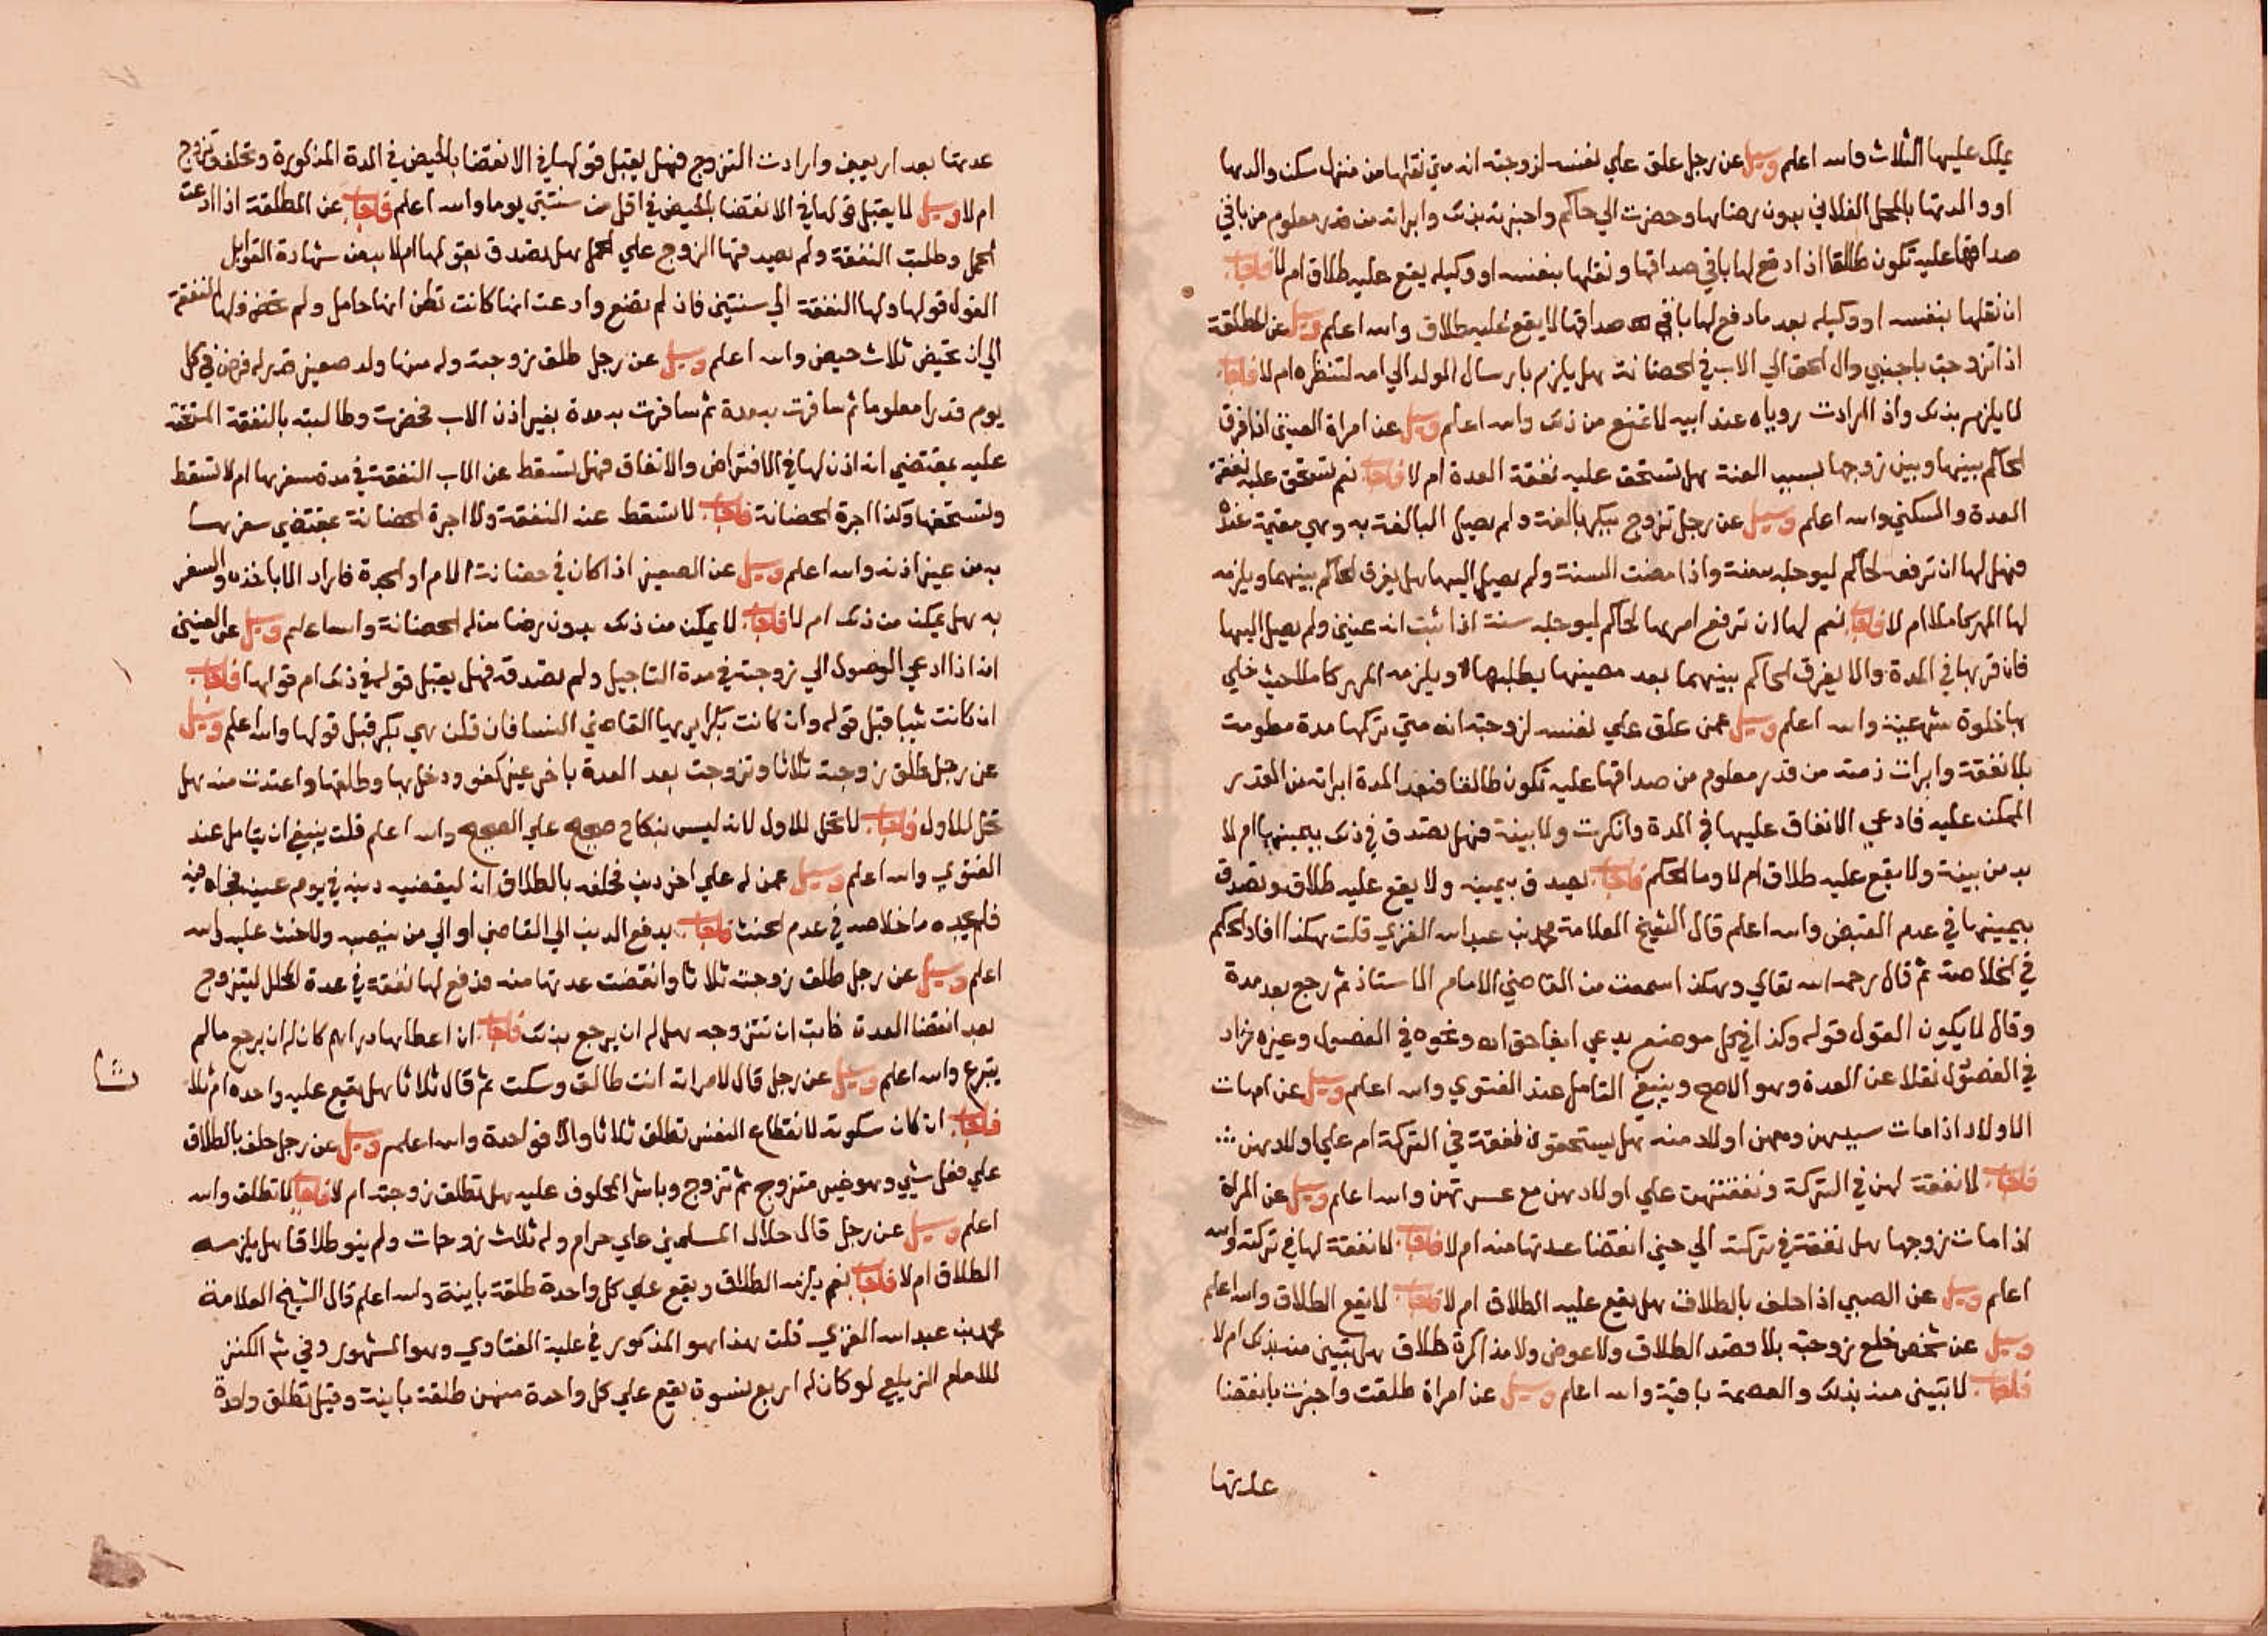 يملك عليها الثلاث والله اعلم وسيل عن رجل علق علي نفسه لزوجته انه متي نقلها من منزل سكن والدها
او والدتها بالمحل الفلاني بدون رضاها وحضرت الي حاكم واخبرته بذلك وابراته من قدر معلوم من باقي
صداقها عليه تكون طالقا اذا دفع لها باقي صداقها ونقلها بنفسه او وكيله يقع عليه طلاق ام لا فاجاب
ان نقلها بنفسه او وكيله بعد ما دفع لها باقي صداقها لا يقع عليه طلاق والله اعلم وسيل عن المطلقة
اذا تزوجت باجنبي وال الحق الي الاب في الحضانة هل يلزم بارسال الولد الي امه لتنظره ام لا فاجاب
لا يلزم بذلك واذا ارادت روياه عند ابيه لا تمنع من ذلك والله اعلم وسيل عن امراة العنين اذا فرق
الحاكم بينها وبين زوجها بسبب العنة هل تستحق عليه نفقة العدة ام لا فاجاب نعم تستحق عليه نفقة
العدة والسكني والله اعلم وسيل عن رجل تزوج ببكر بالغة ولم يصل البالغة به وهي مقيمة عنده
فهل لها ان ترفعه لحاكم ليوجله سنة واذا مضت السنة ولم يصل اليها هل يفرق الحاكم بينهما ويلزمه
لها المهر كاملا ام لا فاجاب نعم لها ان ترفع امرها لحاكم ليوجله سنة اذا ثبت انه عنين ولم يصل اليها
فان قربها في المدة والا يفرق الحاكم بينهما بعد مضيها بطلبها ويلزمه المهر كاملا حيث خلي
بها خلوة شرعية والله اعلم وسيل عمن علق علي نفسه لزوجته انه متي تركها مدة معلومة
بلا نفقة وابرات ذمته من قدر معلوم من صداقها عليه تكون طالقا فبعد المدة ابراته من القدر
الممكن عليه فادعي الانفاق عليها في المدة وانكرت ولا بينة فهل يصدق في ذلك بيمينها ام لا
بد من بينة ولا يقع عليه طلاق ام لا وما الحكم فاجاب يصدق بيمينه ولا يقع عليه طلاق وتصدق
بيمينها في عدم القبض والله اعلم قال الشيخ العلامة محمد بن عبد الله الغزي قلت هكذا افاد الحكم
في الخلاصة ثم قال رحمه الله تعالي وهكذا سمعت من القاضي الامام الاستاذ ثم رجع بعد مدة
وقال لا يكون القول قوله وكذا في كل موضع يدعي ايفا حق اه ونحوه في الفصول وغيره وزاد
في الفصول نقلا عن العدة وهو الاصح وينبغي التامل عند الفتوي والله اعلم وسيل عن امهات
الاولاد اذا مات سيدهن ومعهن اولاد منه هل يستحقون نفقة في التركة ام علي اولادهن
فاجاب لا نفقة لهن في التركة ونفقتهن علي اولادهن مع عسرتهن والله اعلم وسيل عن المراة
اذا مات زوجها هل نفقة في تركته الي حين انقضا عدتها منه ام لا فاجاب لا نفقة لها في تركته والله
اعلم وسيل عن الصبي اذا حلف بالطلاق هل يقع عليه الطلاق ام لا فاجاب لا يقع الطلاق والله اعلم
وسيل عن شخص خلع زوجته بلا قصد الطلاق ولا عوض ولا مذاكرة طلاق هل تبين منه بذلك ام لا
فاجاب لا تبين منه بذلك والعصمة باقية والله اعلم وسيل عن امراة طلقت واخبرت بانقضا
عدتها
عدتها بعد اربعين وارادت التزوج فهل يقبل قولها في الانقضا بالحيض في المدة المذكورة وتحلف وتزوج
ام لا وسيل لا يقبل قولها في الانقضا بالحيض في اقل من ستين يوما والله اعلم فاجاب عن المطلقة اذا ادعت
الحمل وطلبت النفقة ولم يصدقها الزوج علي الحمل هل تصدق بقولها ام لا بد من شهادة القوابل
القول قولها ولها النفقة الي سنتين فان لم تضع وادعت انها كانت تظن انها حامل ولم تحض فلها النفقة
الي ان تحيض ثلاث حيض والله اعلم وسيل عن رجل طلق زوجته وله منها ولد صغير قدر له فرض في كل
يوم قدرا معلوما ثم سافرت به مدة ثم سافرت به مدة بغير اذن الاب فحضرت وطالبته بالنفقة المتحقة
عليه بمقتضي انه اذن لها في الاقتراض والانفاق فهل تسقط عن الاب النفقة في مدة سفرها ام لا تسقط
وتستحقها وكذا اجرة الحضانة فاجاب لا تسقط عنه النفقة ولا اجرة الحضانة بمقتضي سفرها
به من غير اذنه والله اعلم وسيل عن الصغير اذا كان في حضانة الام او الجدة فاراد الاب اخذه والسفر
به هل يمكن من ذلك ام لا فاجاب لا يمكن من ذلك بدون رضا من له الحضانة والله اعلم وسيل عن العنين
انه اذا ادعي الوصول الي زوجته في مدة التاجيل ولم تصدقه فهل يقبل قوله في ذلك ام قولها فاجاب
ان كانت ثيبا قبل قوله وان كانت بكرا يريها القاضي النسا فان قلن هي بكر قبل قولها والله اعلم وسيل
عن رجل طلق زوجته ثلاثا وتزوجت بعد العدة باخر غير كفو ودخل بها وطلقها واعتدت منه هل
تحل للاول فاجاب لا تحل للاول لانه ليس بنكاح صحيح علي الصحيح والله اعلم قلت ينبغي ان يتامل عند
الفتوي والله اعلم وسيل عمن له علي اخر دين فحلفه بالطلاق انه ليقضيه دينه في يوم عينه فجاه فيه
فلم يجده ما خلاصه في عدم الحنث فاجاب يدفع الدين الي القاضي او الي من ينصبه ولا حنث عليه والله
اعلم وسيل عن رجل طلق زوجته ثلاثا وانقضت عدتها منه فدفع لها نفقة في عدة المحلل ليتزوج
بعد انقضا العدة فابت ان تتزوجه هل له ان يرجع بذلك فاجاب ان اعطاها دراهم كان له ان يرجع ما لم
يتبرع والله اعلم وسيل عن رجل قال لامراته انت طالق وسكت ثم قال ثلاثا هل يقع عليه واحدة ام ثلاث
فاجاب ان كان سكوته لانقطاع النفس تطلق ثلاثا والا فواحدة والله اعلم وسيل عن رجل حلف بالطلاق
علي فعل شيي وهو غير متزوج ثم تزوج وباشر المحلوف عليه هل تطلق زوجته ام لا فاجاب لا تطلق والله
اعلم وسيل عن رجل قال حلال المسلمين علي حرام وله ثلاث زوجات ولم ينو طلاقا هل يلزمه
الطلاق ام لا فاجاب نعم يلزمه الطلاق ويقع علي كل واحدة طلقة باينة والله اعلم قال الشيخ العلامة
محمد بن عبد الله الغزي قلت هذا هو المذكور في غلبة الفتاوي وهو المشهور وفي شرح الكنز
للامام الزيلعي لو كان له اربع نسوة يقع علي كل واحدة منهن طلقة باينة وقيل تطلق واحدة